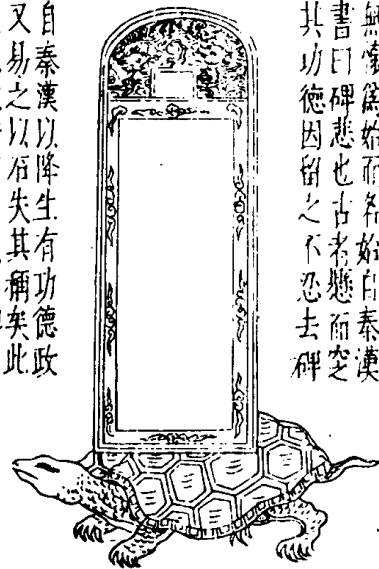 無懷爲始而名始自秦漢
書曰碑悲也古者懸而窆
其功德因留之不忍去碑
自秦漢以降生有功德政
又易之以石失其稱矣此